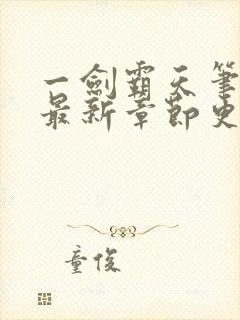 一劍霸天筆
最新章節史
童俊